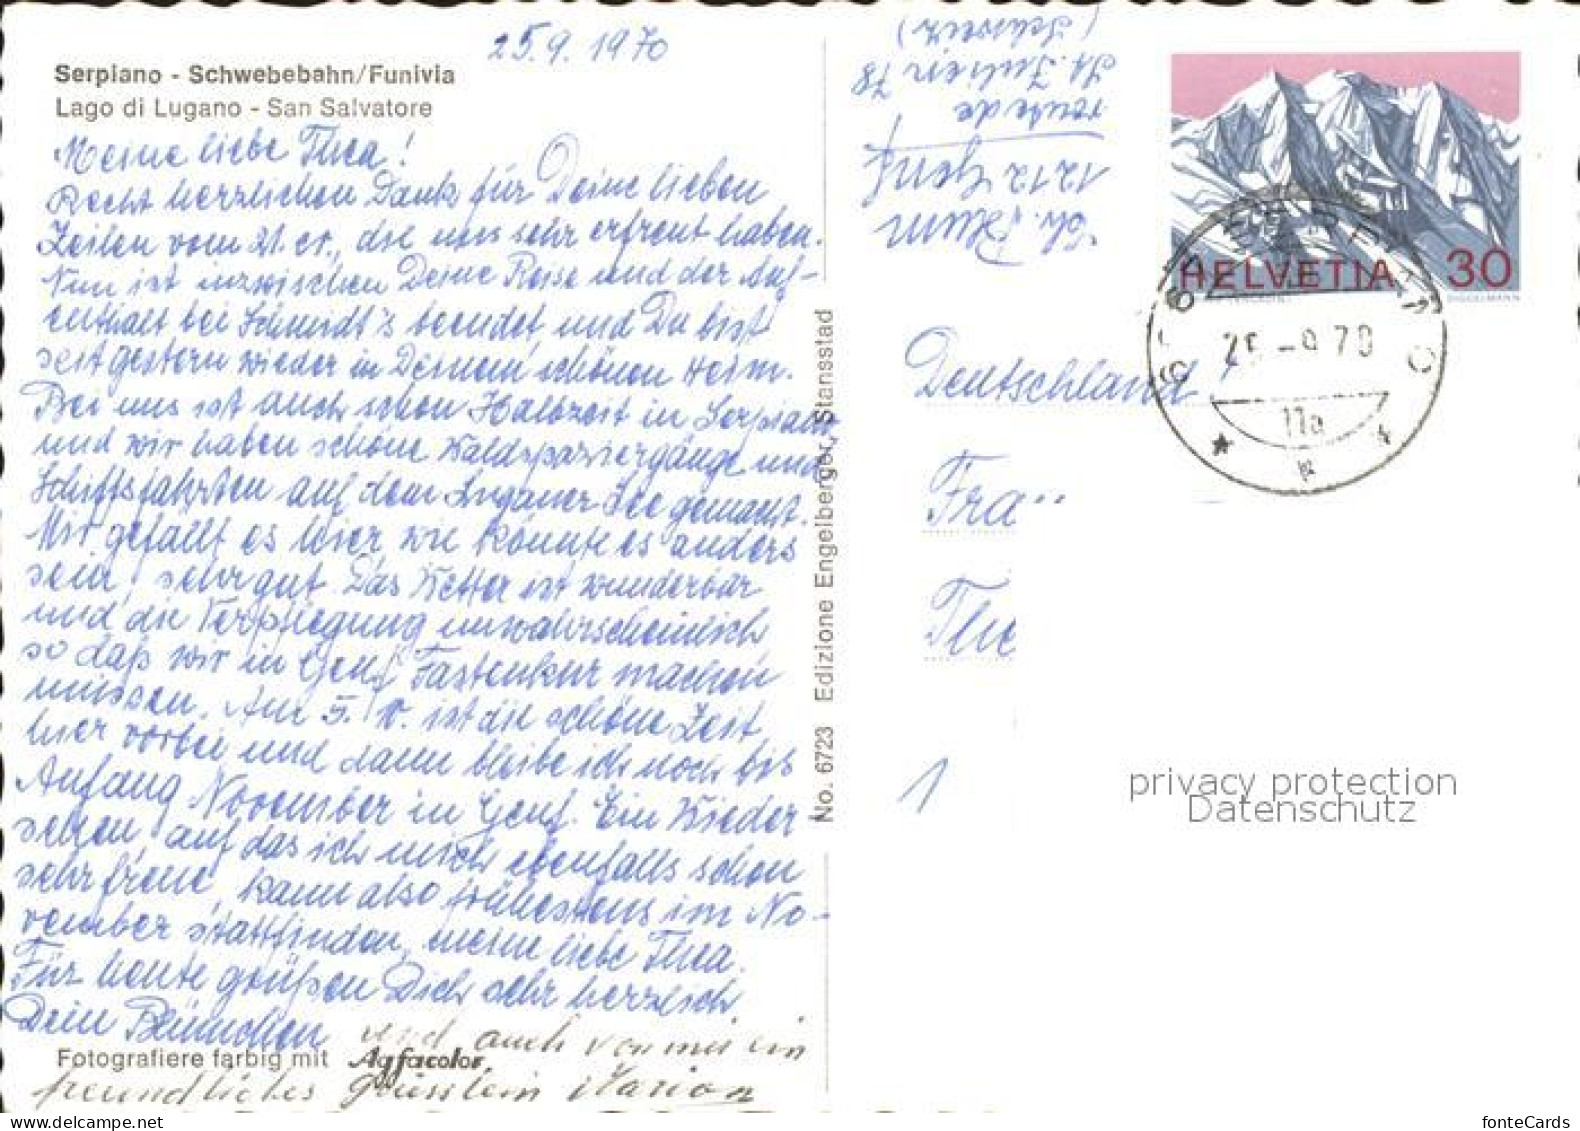 25.9.1970
Serpiano - Schwebebahn/Funivia
Lago di Lugano - San Salvatore
Meine liebe Thea!
Recht herzlichen Dank für Deine lieben
Zeilen vom 21. cr., die uns sehr erfreut haben.
Nun ist inzwischen Deine Reise und der Auf-
enthalt bei Schmidt's beendet, und Du bist
seit gestern wieder in Deinem schönen Heim.
Bei uns ist auch schon Halbzeit in Serpiano
und wir haben schöne Waldspaziergänge und
Schiffsfahrten auf dem Luganer See gemacht.
Mir gefällt es hier, wie könnte es anders
sein, sehr gut. Das Wetter ist wunderbar
und die Verpflegung unwahrscheinlich,
so daß wir in Genf Fastenkur machen
müssen. Am 5. X. ist die schöne Zeit
hier vorbei und dann bleibe ich noch bis
Anfang November in Genf. Ein Wieder-
sehen, auf das ich mich ebenfalls schon
sehr freue, kann also frühestens im No-
vember stattfinden, meine liebe Thea.
Für heute grüßen Dich sehr herzlich
Dein Blümchen und auch von mir ein
Fotografiere farbig mit Agfacolor
freundliches Grüsslein Marion
No. 6723 Edizione Engelberger, Stansstad
Blum
1212 Genf
route de
St. Julien 78
(Schweiz)
HELVETIA 30
DIGGELMANN
26-9 70
11a
Deutschland
Frau
The
1
privacy protection
Datenschutz
fonteCards